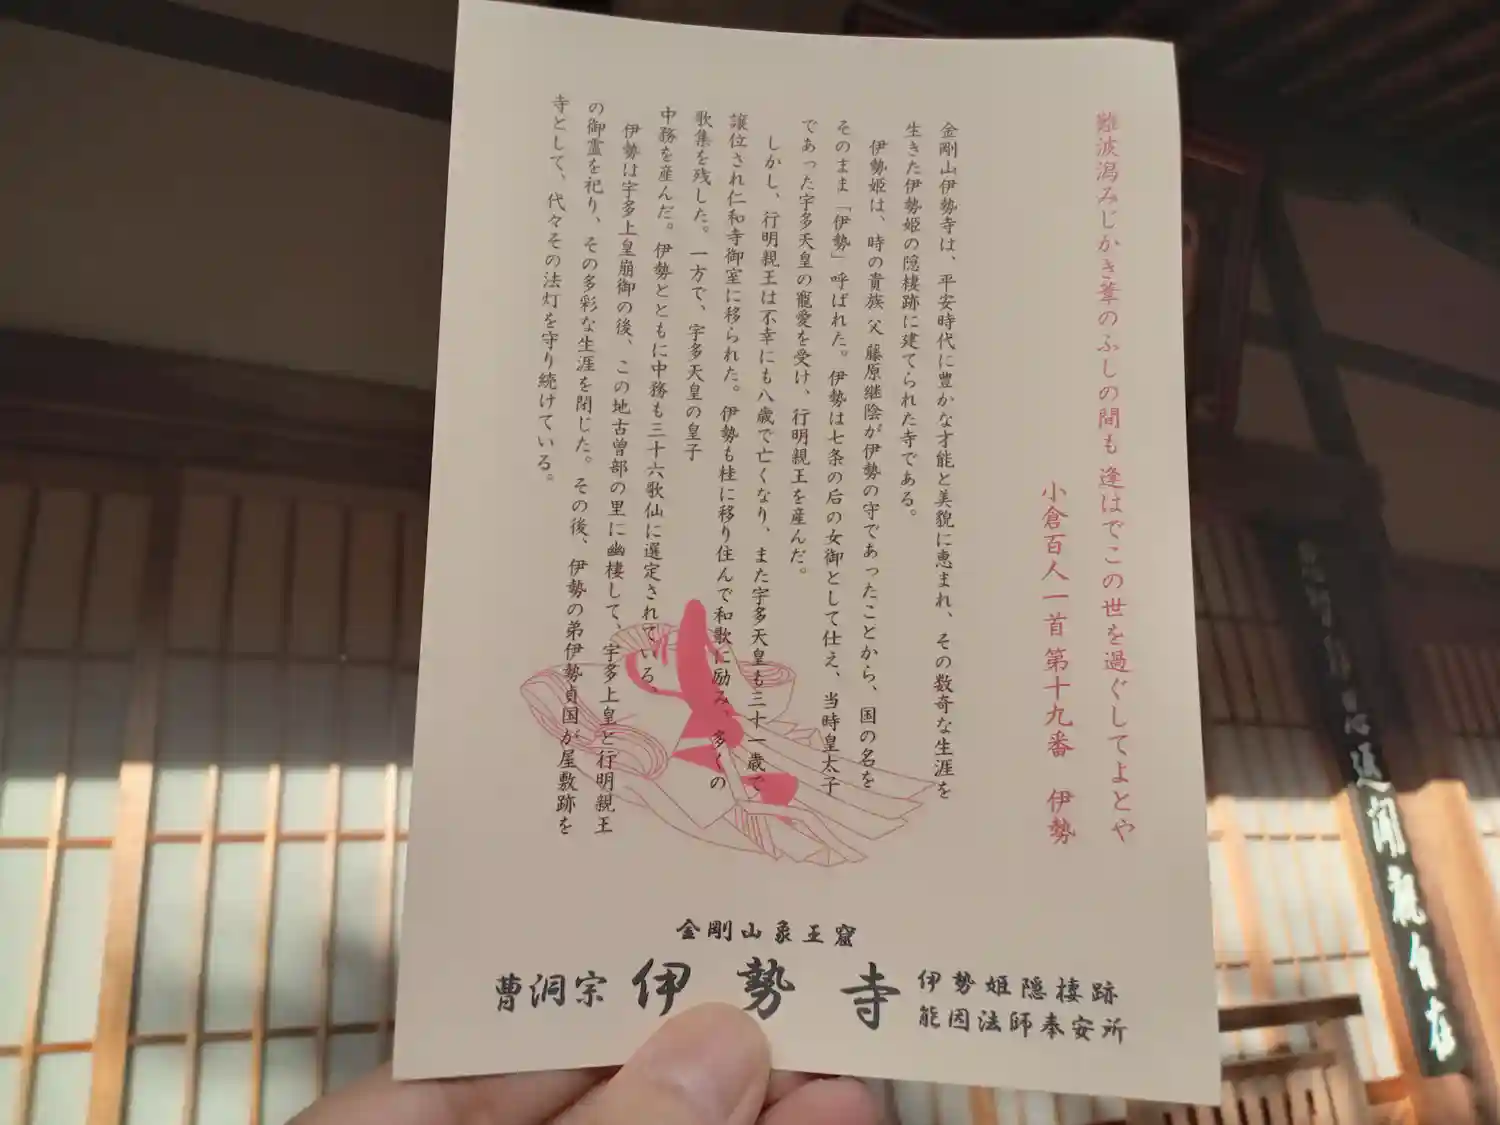 難波潟みじかき葦のふしの間も 逢はでこの世を過ぐしてよとや
小倉百人一首 第十九番 伊勢
金剛山伊勢寺は、平安時代に豊かな才能と美貌に恵まれ、その数奇な生涯を
生きた伊勢姫の隠棲跡に建てられた寺である。
伊勢姫は、時の貴族 父 藤原継陰が伊勢の守であったことから、国の名を
そのまま「伊勢」呼ばれた。伊勢は七条の后の女御として仕え、当時皇太子
であった宇多天皇の寵愛を受け、行明親王を産んだ。
しかし、行明親王は不幸にも八歳で亡くなり、また宇多天皇も三十一歳で
譲位され仁和寺御室に移られた。伊勢も桂に移り住んで和歌に励み、多くの
歌集を残した。一方で、宇多天皇の皇子
中務を産んだ。伊勢とともに中務も三十六歌仙に選定されている、
伊勢は宇多上皇崩御の後、この地古曽部の里に幽棲して、宇多上皇と行明親王
の御霊を祀り、その多彩な生涯を閉じた。その後、伊勢の弟伊勢貞国が屋敷跡を
寺として、代々その法灯を守り続けている。
金剛山象王窟
曹洞宗 伊勢寺
伊勢姫隠棲跡
能因法師奉安所